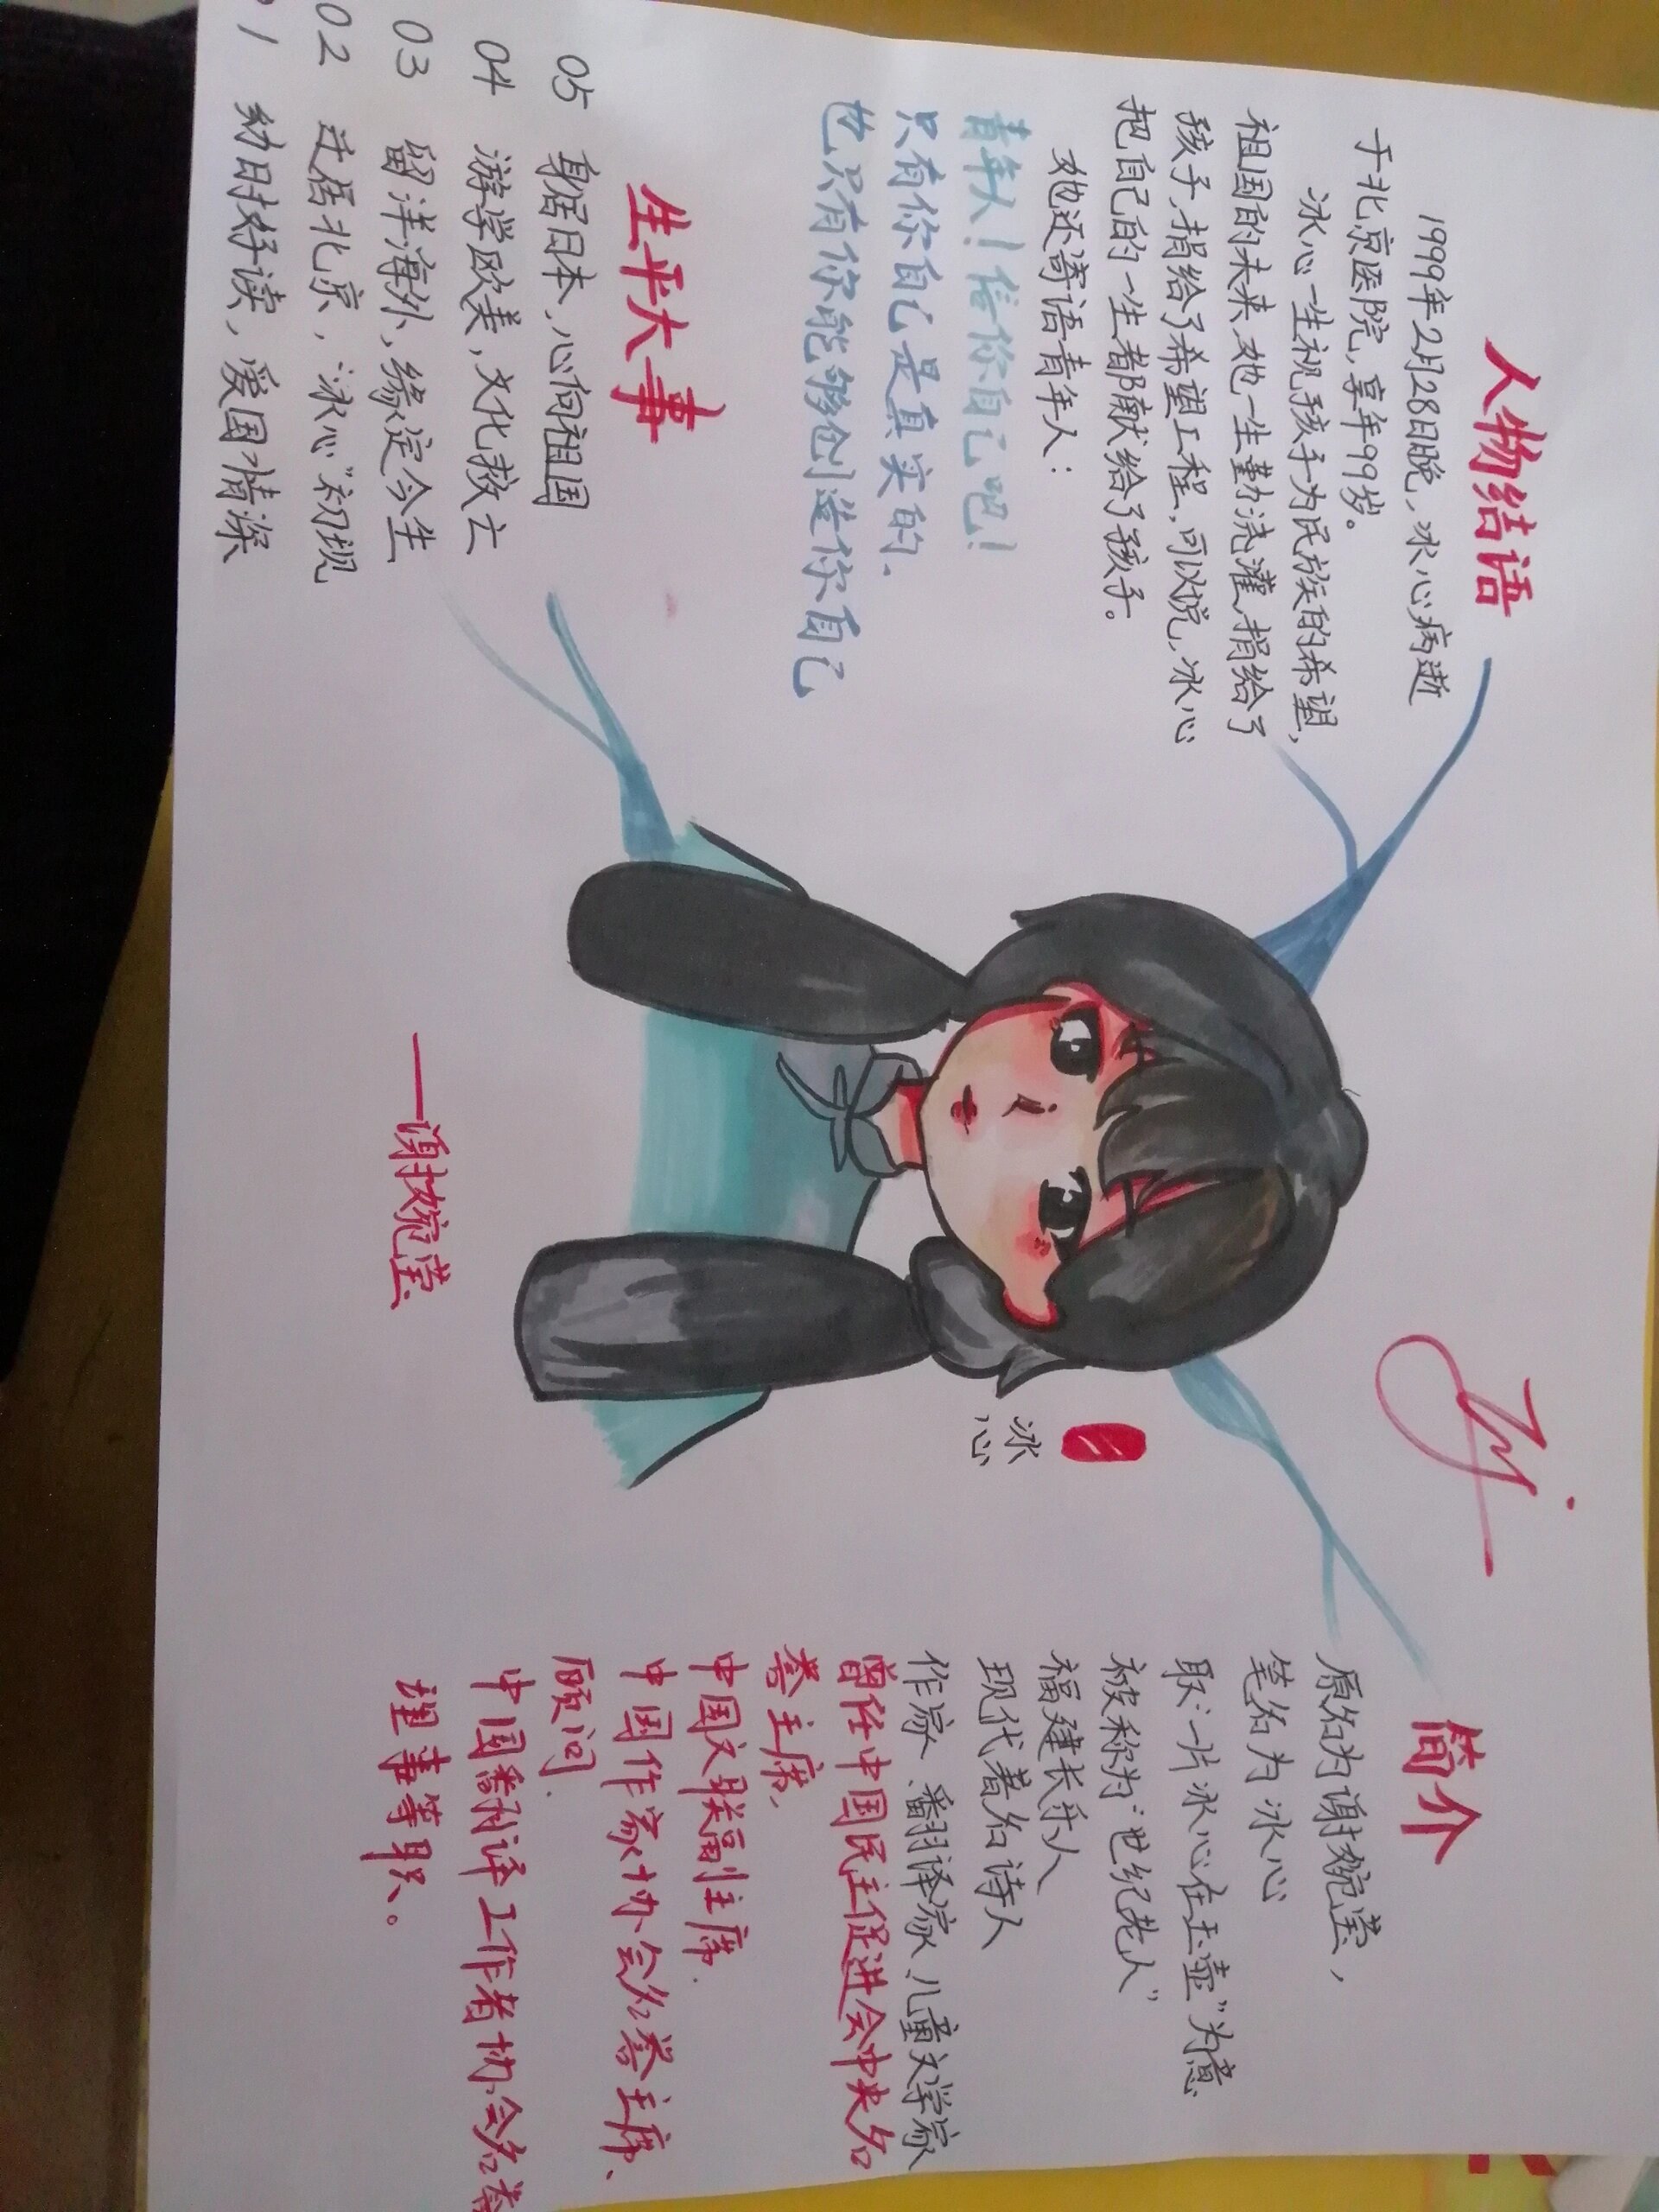 人物结语
1999年2月28日晚，冰心病逝
于北京医院，享年99岁。
冰心一生视孩子为民族的希望，
祖国的未来，她一生勤浇灌，捐给了
孩子，捐给了希望工程，可以说，冰心
把自己的一生都献给了孩子。
她还寄语青年人：
青年人！信你自己吧！
只有你自己是真实的、
也只有你能够创造你自己
生平大事
05 身居日本，心向祖国
04 游学欧美，文化救亡
03 留洋海外，缘定今生
02 迁居北京，“冰心”初现
01 幼时好读，爱国情深
冰心
——谢婉莹
简介
原名为谢婉莹，
笔名为冰心
取“一片冰心在玉壶”为意
被称为“世纪老人”
福建长乐人
现代著名诗人
作家、翻译家、儿童文学家
曾任中国民主促进会中央名
誉主席，
中国文联副主席.
中国作家协会名誉主席、
顾问.
中国翻译工作者协会名誉
理事等职。